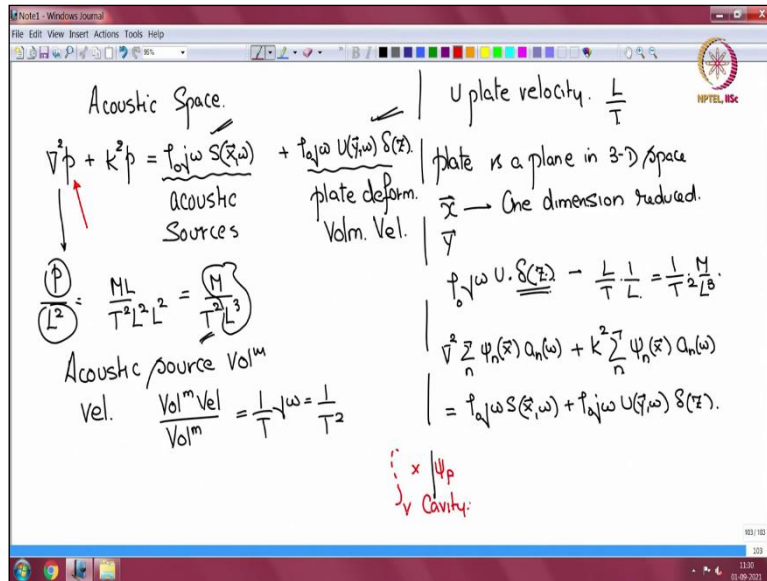 Note1 - Windows Journal
File Edit View Insert Actions Tools Help
95%
NPTEL, IISc
Acoustic Space.
∇²p + k²p = ρ₀jω S(x⃗,ω) + ρ₀jω U(y⃗,ω) δ(z).
acoustic
Sources
plate deform.
Volm. Vel.
P/L² = ML/T²L²L² = M/T²L³
Acoustic source Volᵐ
vel. Volᵐ Vel/Volᵐ = 1/T jω = 1/T²
U plate velocity. L/T
plate is a plane in 3-D space
x⃗ — One dimension reduced.
y⃗
ρ₀jω U. δ(z) - L/T · 1/L = 1/T² · M/L³.
∇² Σₙ ψₙ(x⃗) aₙ(ω) + k² Σₙ ψₙ(x⃗) aₙ(ω)
= ρ₀jω S(x⃗,ω) + ρ₀jω U(y⃗,ω) δ(z).
x ψp
v Cavity.
103 / 103
103
11:30
01-09-2021